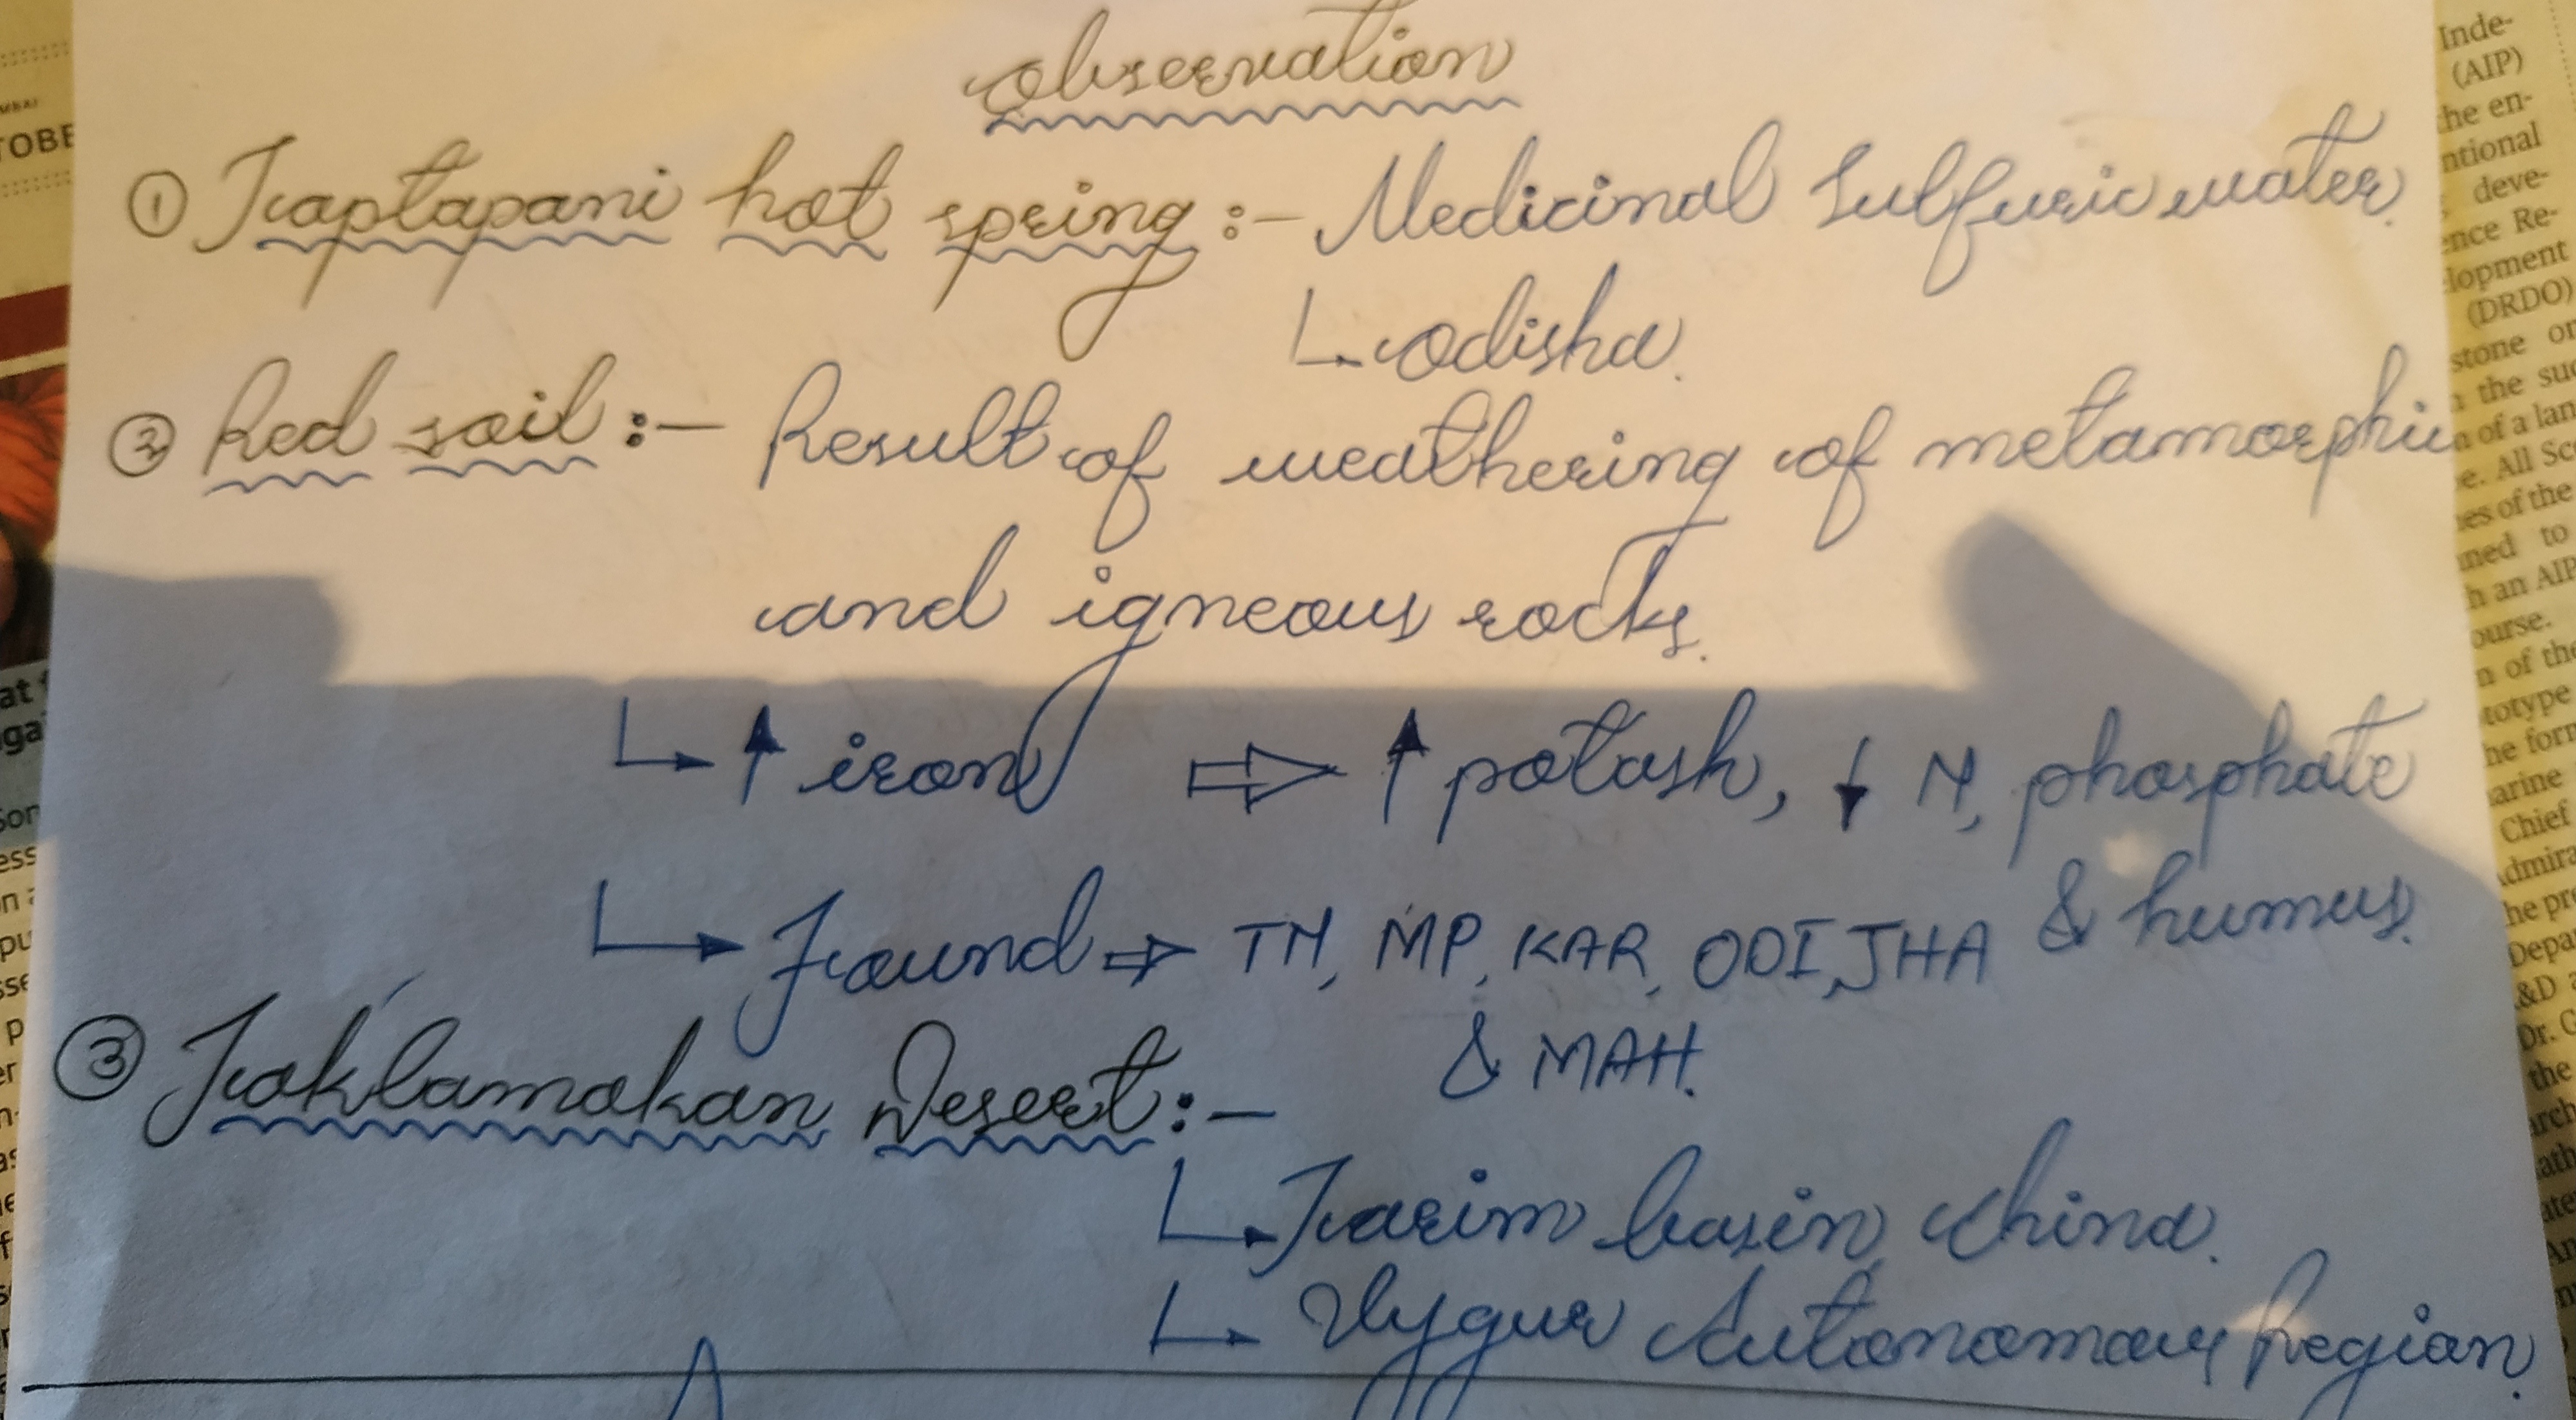 Observation
① Taptapani hot spring :- Medicinal Sulfuric water.
↳ Odisha.
② Red soil :- Result of weathering of metamorphic
and igneous rocks.
↳ ↑ iron ⇨ ↑ potash, ↓ N, phosphate
& humus.
↳ Found ⇨ TN, MP, KAR, ODI, JHA
& MAH.
③ Taklamakan Desert :-
↳ Tarim basin, China.
↳ Uygur Autonomous Region.
TOBE
Inde-
(AIP)
he en-
ntional
deve-
ence Re-
lopment
(DRDO)
stone or
the suc
of a lan
e. All Sc
es of the
ned to
h an AIP
ourse.
n of the
totype
he for
arine
Chief
dmira
he pre
Depar
&D a
Dr. C
the